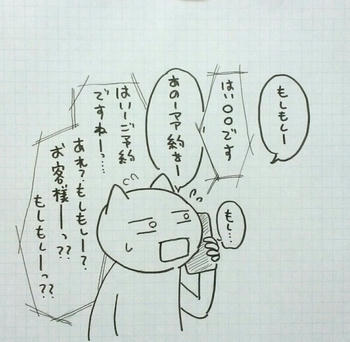 もしもしー
はい○○です
あのーアア約をー
はいーご予約
ですねーっ…
あれ?もしもしー?
お客様ーっ??
もしもしーっ??
もし…